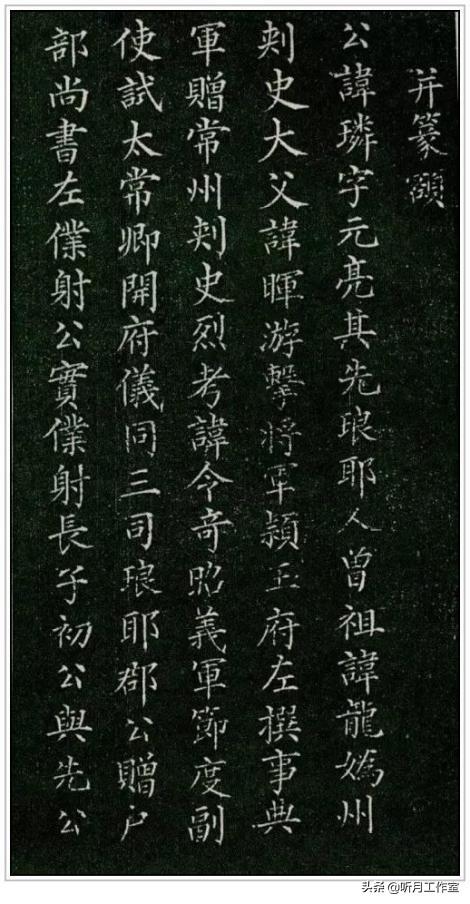 并篆額
公諱璘字元亮其先琅耶人曾祖諱龍嬀州
刾史大父諱暉游擊将軍潁王府左撰事典
軍贈常州刾史烈考諱令奇昭義軍節度副
使試太常卿開府儀同三司琅耶郡公贈户
部尚書左僕射公實僕射長子初公與先公
头条 @听月工作室